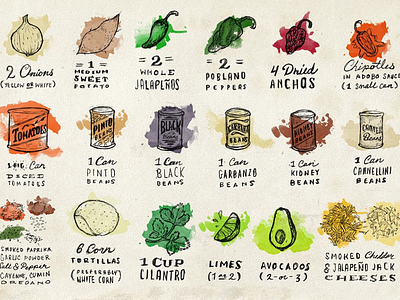 2 Onions
(YELLOW OR WHITE)
= 1 =
MEDIUM
SWEET
POTATO
= 2 =
WHOLE
JALAPEÑOS
= 2 =
POBLANO
PEPPERS
4 Dried
ANCHOS
Chipotles
IN ADOBO SAUCE
(1 small can)
TOMATOES
1 BIG Can
DICED
TOMATOES
PINTO
1 Can
PINTO
BEANS
BLACK
1 Can
BLACK
BEANS
1 Can
GARBANZO
BEANS
KIDNEY
1 Can
KIDNEY
BEANS
Beans
1 Can
CANNELLINI
BEANS
SMOKED PAPRIKA
GARLIC POWDER
Salt & Pepper
CAYENNE, CUMIN
OREGANO
6 Corn
TORTILLAS
(PREFERABLY)
WHITE CORN
1 CUP
CILANTRO
LIMES
(1 or 2)
AVOCADOS
(2 - or - 3)
SMOKED Cheddar
& JALAPEÑO JACK
CHEESES